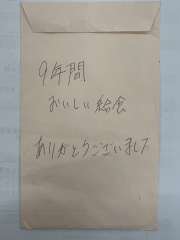 9年間
おいしい給食
ありがとうございました